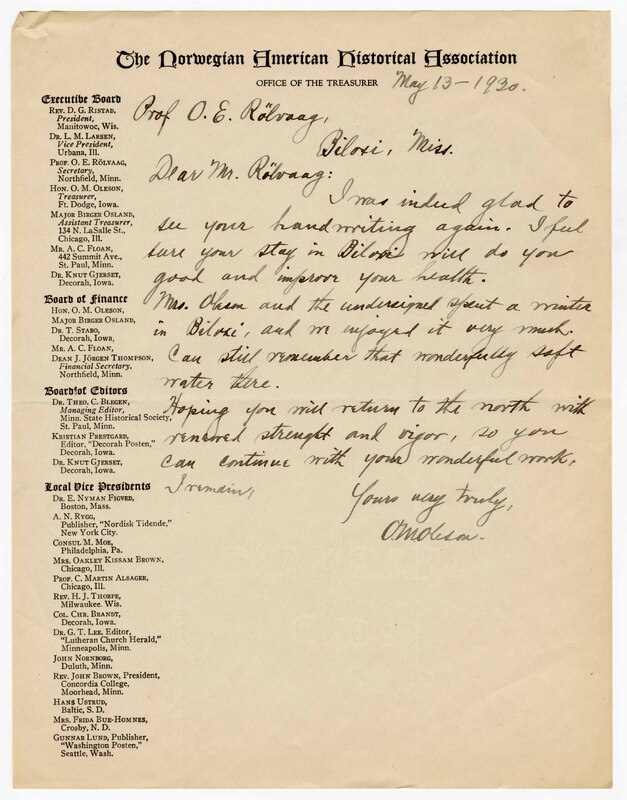 The Norwegian American Historical Association
OFFICE OF THE TREASURER
May 13-1930.
Executive Board
REV. D. G. RISTAD,
President,
Manitowoc, Wis.
DR. L. M. LARSEN,
Vice President,
Urbana, Ill.
PROF. O. E. RÖLVAAG,
Secretary,
Northfield, Minn.
HON. O. M. OLESON,
Treasurer,
Ft. Dodge, Iowa.
MAJOR BIRGER OSLAND,
Assistant Treasurer,
134 N. LaSalle St.,
Chicago, Ill.
MR. A. C. FLOAN,
442 Summit Ave.,
St. Paul, Minn.
DR. KNUT GJERSET,
Decorah, Iowa.
Board of Finance
HON. O. M. OLESON,
MAJOR BIRGER OSLAND,
DR. T. STABO,
Decorah, Iowa,
MR. A. C. FLOAN,
DEAN J. JÖRGEN THOMPSON,
Financial Secretary,
Northfield, Minn.
Board of Editors
DR. THEO. C. BLEGEN,
Managing Editor,
Minn. State Historical Society,
St. Paul, Minn.
KRISTIAN PRESTGARD,
Editor, "Decorah Posten,"
Decorah, Iowa.
DR. KNUT GJERSET,
Decorah, Iowa.
Local Vice Presidents
DR. E. NYMAN FIGVED,
Boston, Mass.
A. N. RYGG,
Publisher, "Nordisk Tidende,"
New York City.
CONSUL M. MOE,
Philadelphia, Pa.
MRS. OAKLEY KISSAM BROWN,
Chicago, Ill.
PROF. C. MARTIN ALSAGER,
Chicago, Ill.
REV. H. J. THORPE,
Milwaukee. Wis.
COL. CHR. BRANDT,
Decorah, Iowa.
DR. G. T. LEE, Editor,
"Lutheran Church Herald,"
Minneapolis, Minn.
JOHN NORNBORG,
Duluth, Minn.
REV. JOHN BROWN, President,
Concordia College,
Moorhead, Minn.
HANS USTRUD,
Baltic, S. D.
MRS. FRIDA BUE-HOMNES,
Crosby, N. D.
GUNNAR LUND, Publisher,
"Washington Posten,"
Seattle, Wash.
Prof O. E. Rölvaag,
Biloxi, Miss.
Dear Mr. Rölvaag:
I was indeed glad to
see your handwriting again. I feel
sure your stay in Biloxi will do you
good and improve your health.
Mrs. Oleson and the undersigned spent a winter
in Biloxi, and we enjoyed it very much.
Can still remember that wonderfully soft
water there.
Hoping you will return to the north with
renewed strenght and vigor, so you
can continue with your wonderful work,
I remain,
Yours very truly,
O.M.Oleson.